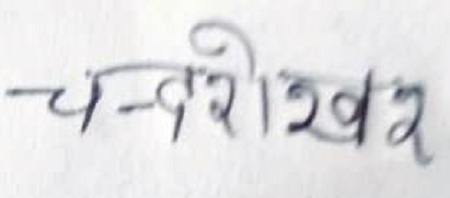 चन्दशेखर